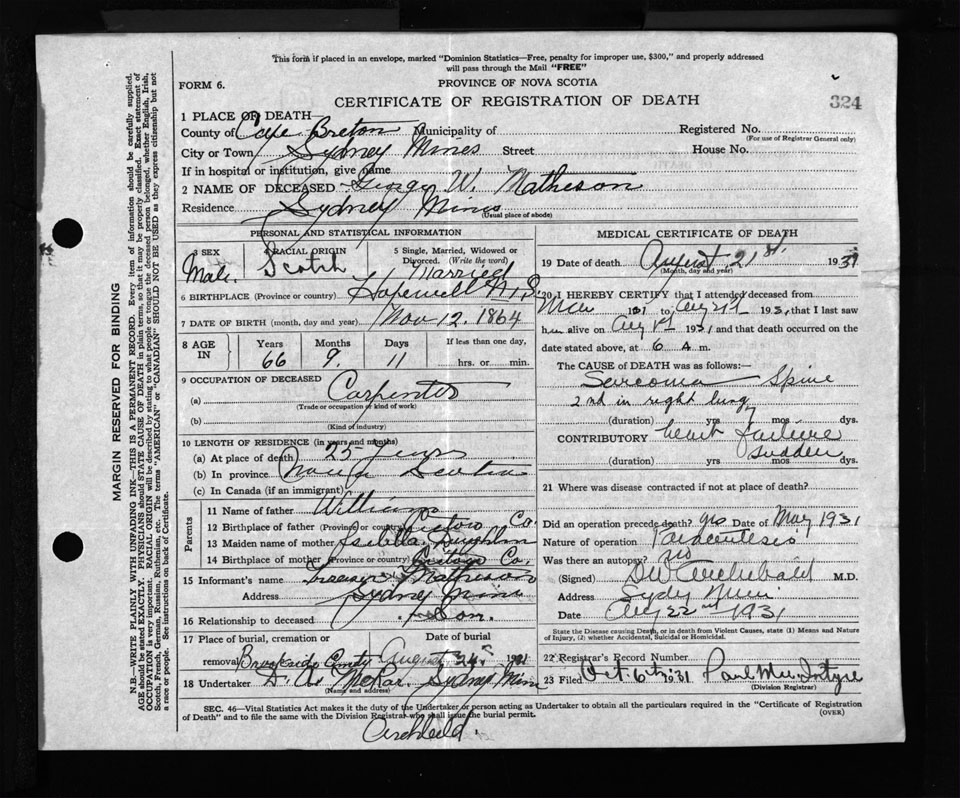 This form if placed in an envelope, marked "Dominion Statistics—Free, penalty for improper use, $300," and properly addressed
will pass through the Mail "FREE"
FORM 6.
PROVINCE OF NOVA SCOTIA
324
CERTIFICATE OF REGISTRATION OF DEATH
1 PLACE OF DEATH
County of Cape Breton Municipality of Registered No.
(For use of Registrar General only)
City or Town Sydney Mines Street House No.
If in hospital or institution, give name
2 NAME OF DECEASED George W. Matheson
Residence Sydney Mines
(Usual place of abode)
PERSONAL AND STATISTICAL INFORMATION
3 SEX Male
4 RACIAL ORIGIN Scotch
5 Single, Married, Widowed or Divorced. (Write the word) Married
6 BIRTHPLACE (Province or country) Hopewell N.S.
7 DATE OF BIRTH (month, day and year) Nov 12. 1864
8 AGE IN Years 66 Months 9. Days 11 If less than one day, hrs. or min.
9 OCCUPATION OF DECEASED
(a) Carpenter
(Trade or occupation or kind of work)
(b)
(Kind of industry)
10 LENGTH OF RESIDENCE (in years and months)
(a) At place of death 25 years
(b) In province Nova Scotia
(c) In Canada (if an immigrant)
Parents
11 Name of father William
12 Birthplace of father (Province or country) Pictou Co.
13 Maiden name of mother Isabella
14 Birthplace of mother (Province or country) Pictou Co.
15 Informant's name Matheson
Address Sydney Mines
16 Relationship to deceased Son.
17 Place of burial, cremation or removal Brookside Cemty
Date of burial August 24 1931
18 Undertaker Sydney Mines
(Name and address)
MEDICAL CERTIFICATE OF DEATH
19 Date of death August 21st 1931
(Month, day and year)
20 I HEREBY CERTIFY that I attended deceased from
1931 to Aug 21st 1931, that I last saw
him alive on Aug 1931 and that death occurred on
date stated above, at 6 A m.
The CAUSE of DEATH was as follows:—
Sarcoma Spine
2nd in right lung
(duration) yrs mos dys.
CONTRIBUTORY heart failure
sudden
(duration) yrs mos dys.
21 Where was disease contracted if not at place of death?
Did an operation precede death? yes Date of May 1931
Nature of operation Paracentesis
Was there an autopsy? no
(Signed) D W Archibald M.D.
Address Sydney Mines
Date Aug 22nd 1931
State the Disease causing Death, or in death from Violent Causes, state (1) Means and Nature
of Injury, (2) whether Accidental, Suicidal or Homicidal.
22 Registrar's Record Number
23 Filed Oct. 6th 1931 Paul McIntyre
(Division Registrar)
SEC. 46—Vital Statistics Act makes it the duty of the Undertaker or person acting as Undertaker to obtain all the particulars required in the "Certificate of Registration
of Death" and to file the same with the Division Registrar who shall issue the burial permit.
(OVER)
Archibald.
MARGIN RESERVED FOR BINDING
N.B.—WRITE PLAINLY WITH UNFADING INK—THIS IS A PERMANENT RECORD. Every item of information should be carefully supplied.
AGE should be stated EXACTLY. PHYSICIANS should STATE CAUSE OF DEATH in plain terms, so that it may be properly classified. Exact statement of
OCCUPATION is very important. RACIAL ORIGIN will be described by stating to what people or tongue the deceased person belonged, whether English, Irish,
Scotch, French, German, Russian, Ruthenian, etc. The terms "AMERICAN" or "CANADIAN" SHOULD NOT BE USED as they express citizenship but not
a race or people. See instructions on back of Certificate.